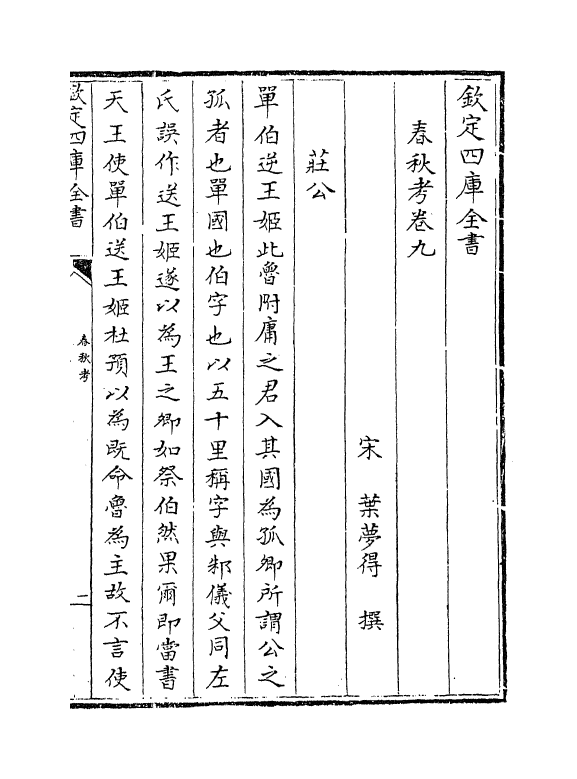 欽定四庫全書
春秋考卷九
宋 葉夢得 撰
莊公
單伯逆王姬此魯附庸之君入其國為孤卿所謂公之
孤者也單國也伯字也以五十里稱字與邾儀父同左
氏誤作送王姬遂以為王之卿如祭伯然果爾即當書
天王使單伯送王姬杜預以為既命魯為主故不言使
欽定四庫全書
春秋考
二